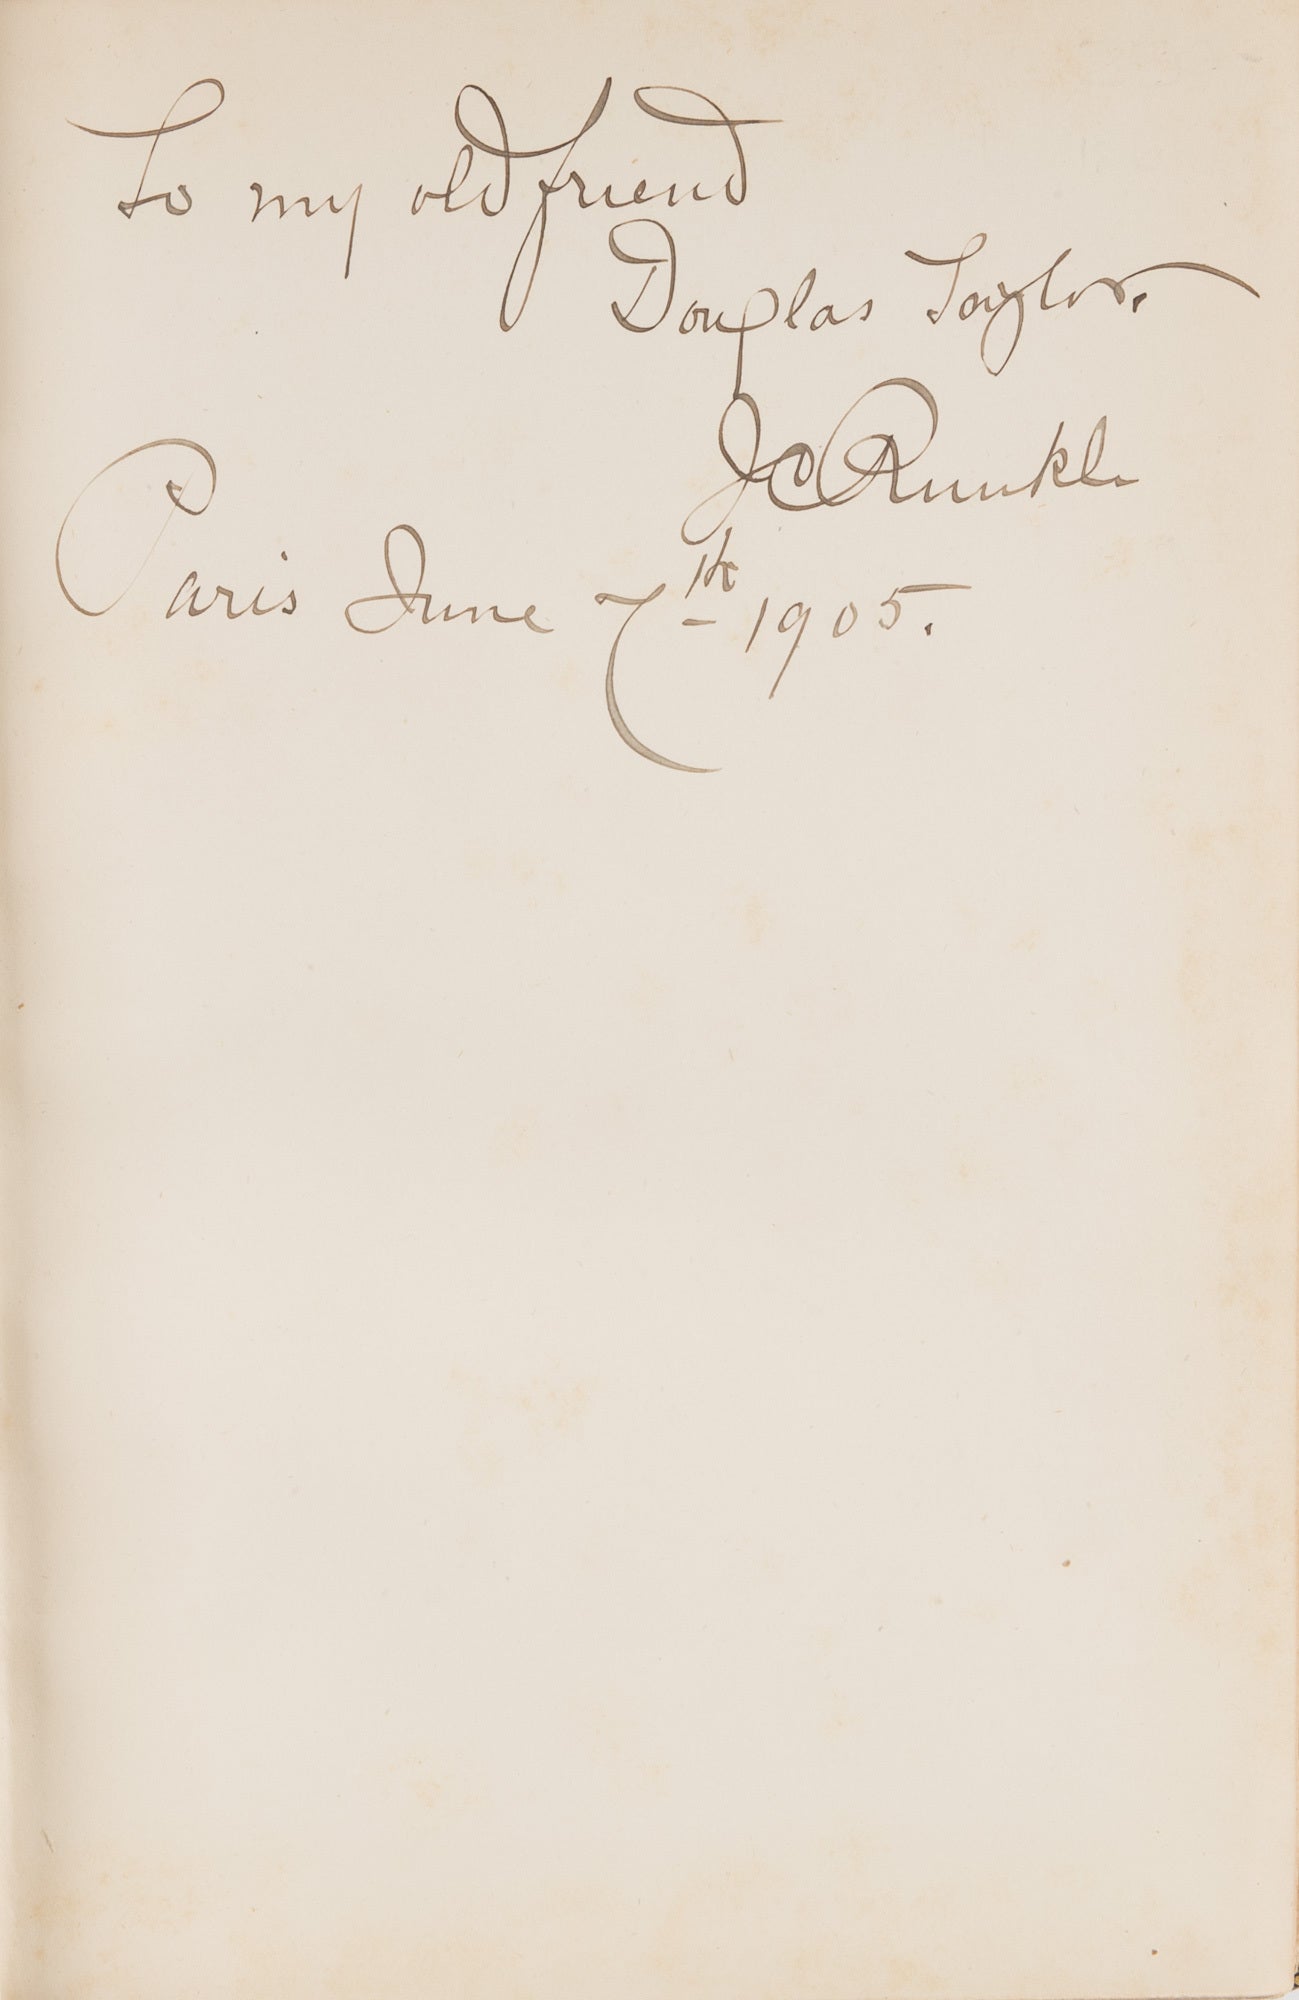 To my old friend
Douglas Taylor.
J C Runkle
Paris June 7th 1905.